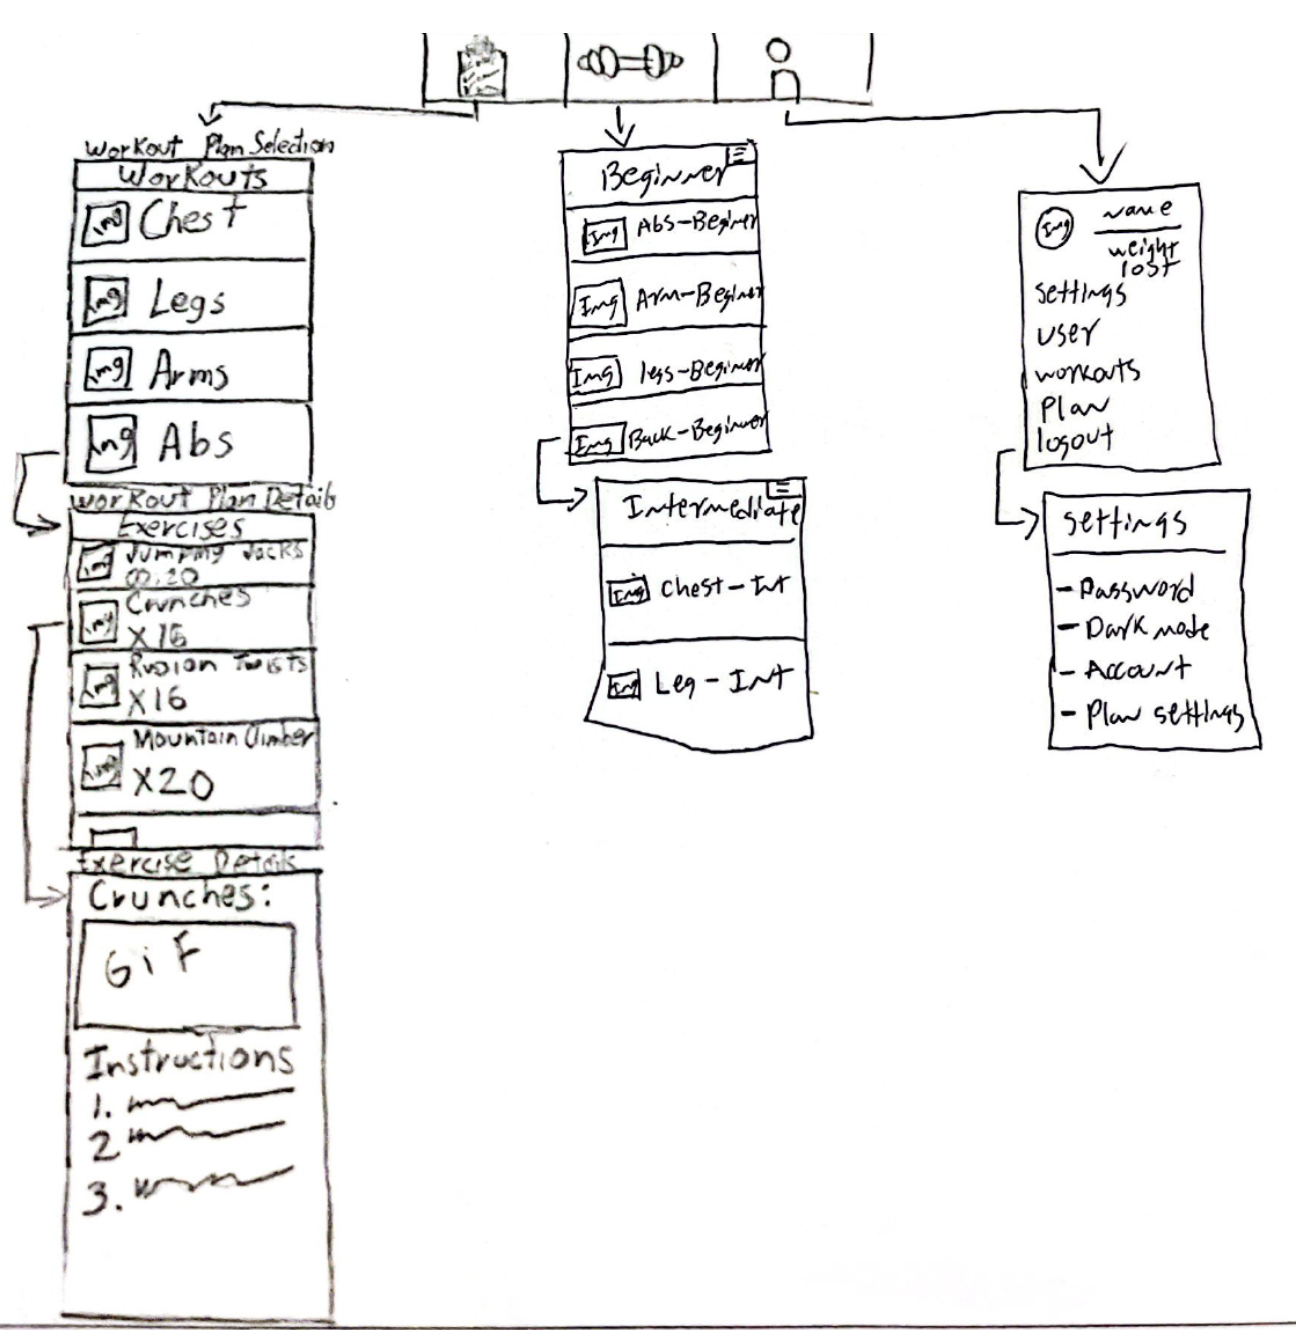 Workout Plan Selection
Workouts
Img Chest
Img Legs
Img Arms
Img Abs
Workout Plan Details
Exercises
Img Jumping Jacks
00:20
Img Crunches
X16
Img Russian Twists
X16
Img Mountain Climber
X20
Exercise Details
Crunches:
GiF
Instructions
1.
2
3.
Beginner
Img Abs-Beginer
Img Arm-Beginer
Img legs-Beginer
Img Back-Beginner
Intermediate
Img Chest-Int
Img Leg-Int
Img Name
weight
lost
settings
user
workouts
Plan
logout
settings
- Password
- Dark mode
- Account
- Plan settings